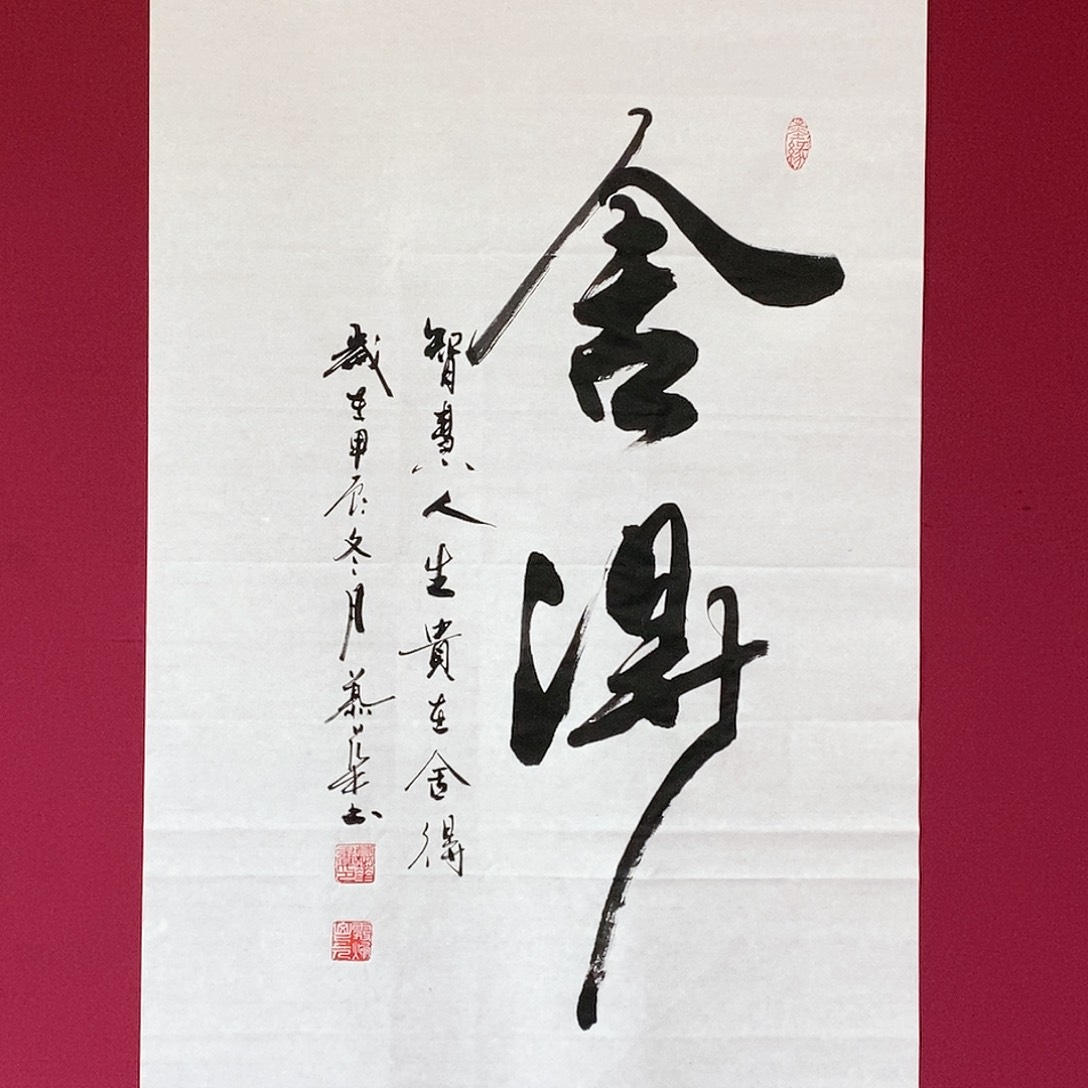 墨缘
舍得
智慧人生貴在舍得
歲在甲辰冬月慕渠书